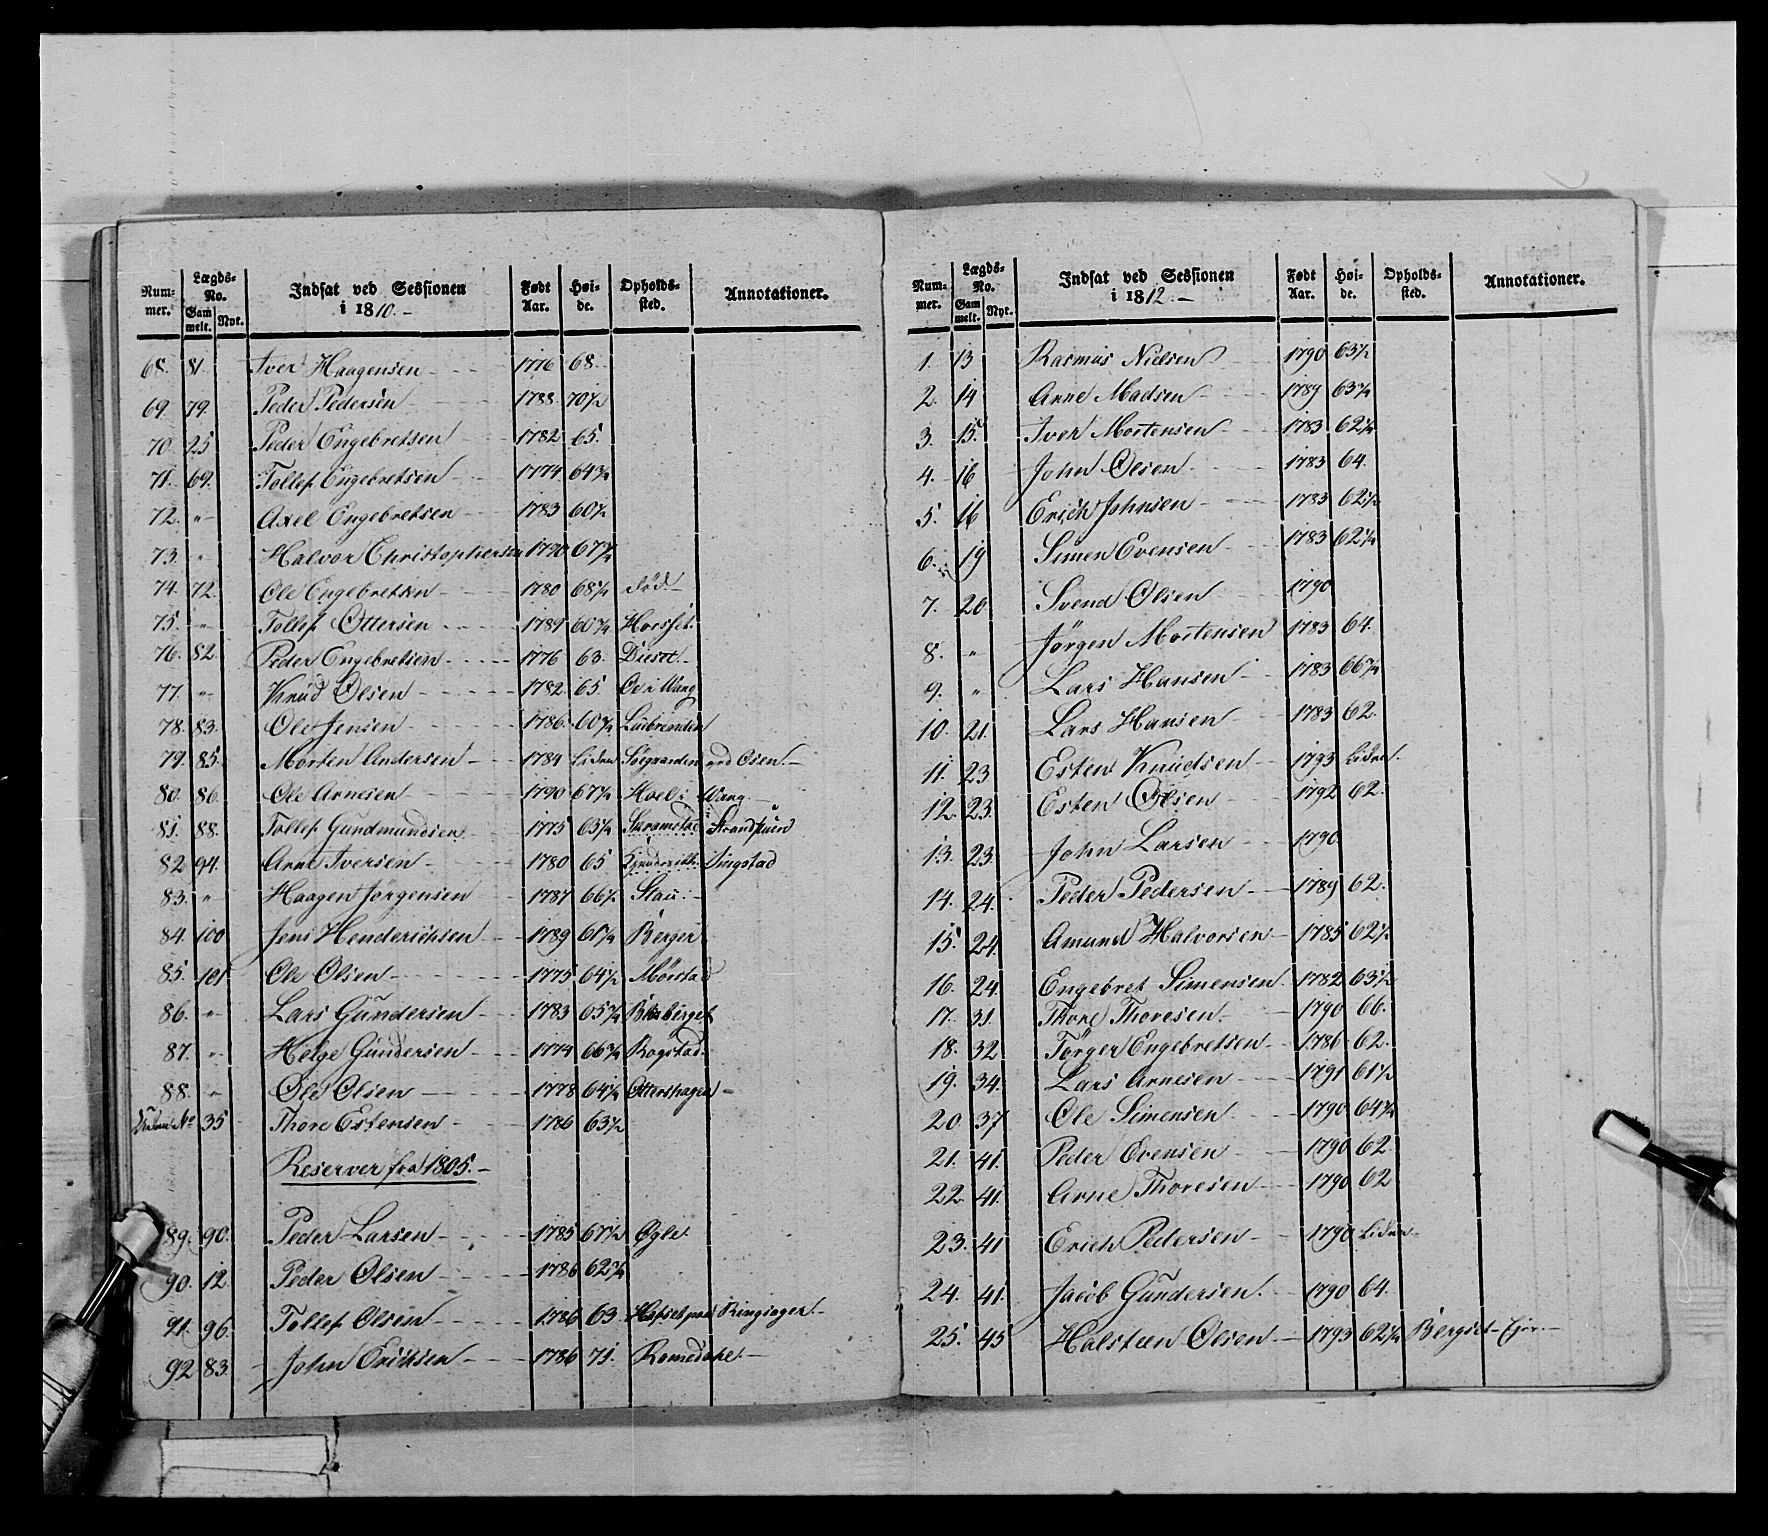 Num-mer. Lægds-No. Gam melt. Nyt. Indsat ved Sessionen i 1810.- Født Aar. Høi-de. Opholds-sted. Annotationer.
68. 81 Iver Haagensen 1776 68.
69. 79. Peder Pedersen 1788. 70½
70. 25 Peder Engebretsen 1782 65.
71. 69. Tollef Engebretsen 1774 64¾
72. " Axel Engebretsen 1783 60½
73. " Halvor Christophersen 1790 67¾
74. 72. Ole Engebretsen 1780 68¼ død.
75. " Tollef Ottersen 1789 60¾
76. 82. Peder Engebretsen 1776 63.
77. " Knud Olsen 1782 65. Wang
78. 83. Ole Jensen 1786. 60¾
79. 85. Morten Andersen 1784 Liden ved Osen.
80. 86. Ole Arnesen 1790 67¼ Hoel i Wang
81. 88. Tollef Gundmundsen 1775 63¼ Skramstad
82 94. Arne Iversen 1780 65 Singstad
83. " Haagen Jørgensen 1787 66½ Stau
84. 100 Jens Henderichsen 1789 61¼ Berger
85. 101. Ole Olsen 1775 64½ Mørstad
86. " Lars Gundersen 1783 65¾
87. " Helge Gundersen 1774 66¾ Rogstad.
88. " Ole Olsen 1778 64¼
Uden No 35 Thore Estensen 1786 63½
Reserver fra 1805.
89. 90. Peder Larsen 1785 67½ Ogle
90. 12. Peder Olsen 1786 62¾
91. 96. Tollef Olsen 1786 63 Ringsager.
92 83. John Erichsen 1786 71. Romedahl.
Num-mer. Lægds-No. Gam melt. Nyt. Indsat ved Sessionen i 1812.- Født Aar. Høi-de. Opholds-sted. Annotationer.
1. 13 Rasmus Nielsen 1790 63½
2. 14 Arne Madsen 1789 63¾
3. 15. Iver Mortensen 1783 62¼
4. 16 John Olsen 1783 64.
5. 16 Erich Johnsen 1783 62½
6. 19 Simen Evensen 1783 62¼
7. 20 Svend Olsen 1790
8. " Jörgen Mortensen 1783 64.
9. " Lars Hansen 1783 66¾
10. 21. Lars Hansen 1783 62.
11. 23 Esten Knudsen 1793 Liden.
12. 23. Esten Olsen 1792 62.
13. 23. John Larsen 1790
14. 24. Peder Pedersen 1789 62.
15. 24. Amund Halvorsen 1785 62½
16. 24. Engebret Simensen 1782 63½
17. 31. Thore Thoresen 1790 66.
18. 32 Törger Engebretsen 1786 62.
19. 34. Lars Arnesen 1791 61½
20. 37 Ole Simensen 1790 64¾
21. 41. Peder Evensen 1790 62.
22. 41. Arne Thoresen 1790 62
23. 41 Erich Pedersen 1790 Liden
24. 41. Jacob Gundersen. 1790 64.
25. 45 Halsteen Olsen 1793 62¼ Bergset